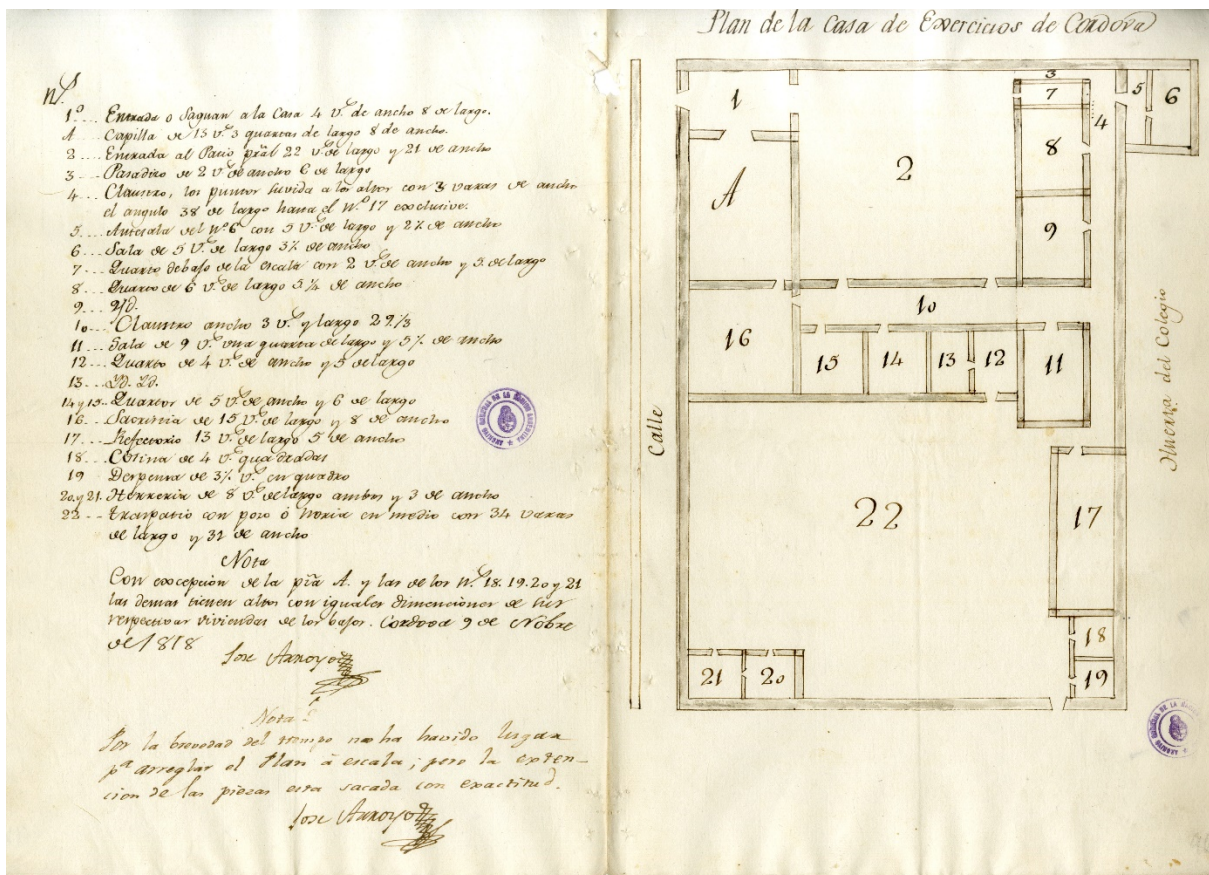 N.s
1.º... Entrada o Saguan a la Casa 4 v.s de ancho 8 de largo.
A ... Capilla de 15 v.s 3 quartas de largo 8 de ancho.
2 .... Entrada al Patio prâl 22 v.s de largo y 21 de ancho
3 ... Pasadizo de 2 v.s de ancho 6 de largo
4 ... Claustro, los puntos suvida a los altos con 3 varas de ancho
el angulo 38 de largo hasta el N.º 17 exclusive.
5.... Antesala del nº 6 con 5 v.s de largo y 2½ de ancho
6 ... Sala de 5 v.s de largo 3½ de ancho
7 ... Quarto debajo de la escala con 2 v.s de ancho y 5. de largo
8... Quarto de 6 v.s de largo 5 ¼ de ancho
9 ... Yd.
10... Claustro ancho 3 v.s y largo 29⅓
11 ... Sala de 9 v.s una quarta de largo y 5½ de ancho
12... Quarto de 4 v.s de ancho y 5 de largo
13... Yd. Yd.
14 y 15.. Quartos de 5 v.s de ancho y 6 de largo
16.. Sacristia de 15 v.s de largo y 8 de ancho
17... Refectorio 13 v.s de largo 5 de ancho
18... Cosina de 4 v.s quadradas
19 Despensa de 3½ v.s en quadro
20. y 21. Herreria de 8 v.s de largo ambos y 3 de ancho
22 .. traspatio con poso ó Noria en medio con 34 varas
de largo y 32 de ancho
Nota
Con excepción de la pîa A. y las de los N.s 18. 19. 20 y 21
las demas tienen altos con iguales dimenciones de sus
respectivas viviendas de los bajos. Cordova 9 de Nobre
de 1818
Jose Arroyo
Nota 2.
Por la brevedad del tiempo no ha havido lugar
pª arreglar el Plan â escala; pero la exten-
cion de las piezas esta sacada con exactitud.
Jose Arroyo
Plan de la Casa de Exercicios de Cordova
1
2
3
7
4
5
6
8
A
9
10
16
15
14
13
12
11
Calle
Huerta del Colegio
22
17
18
21
20
19